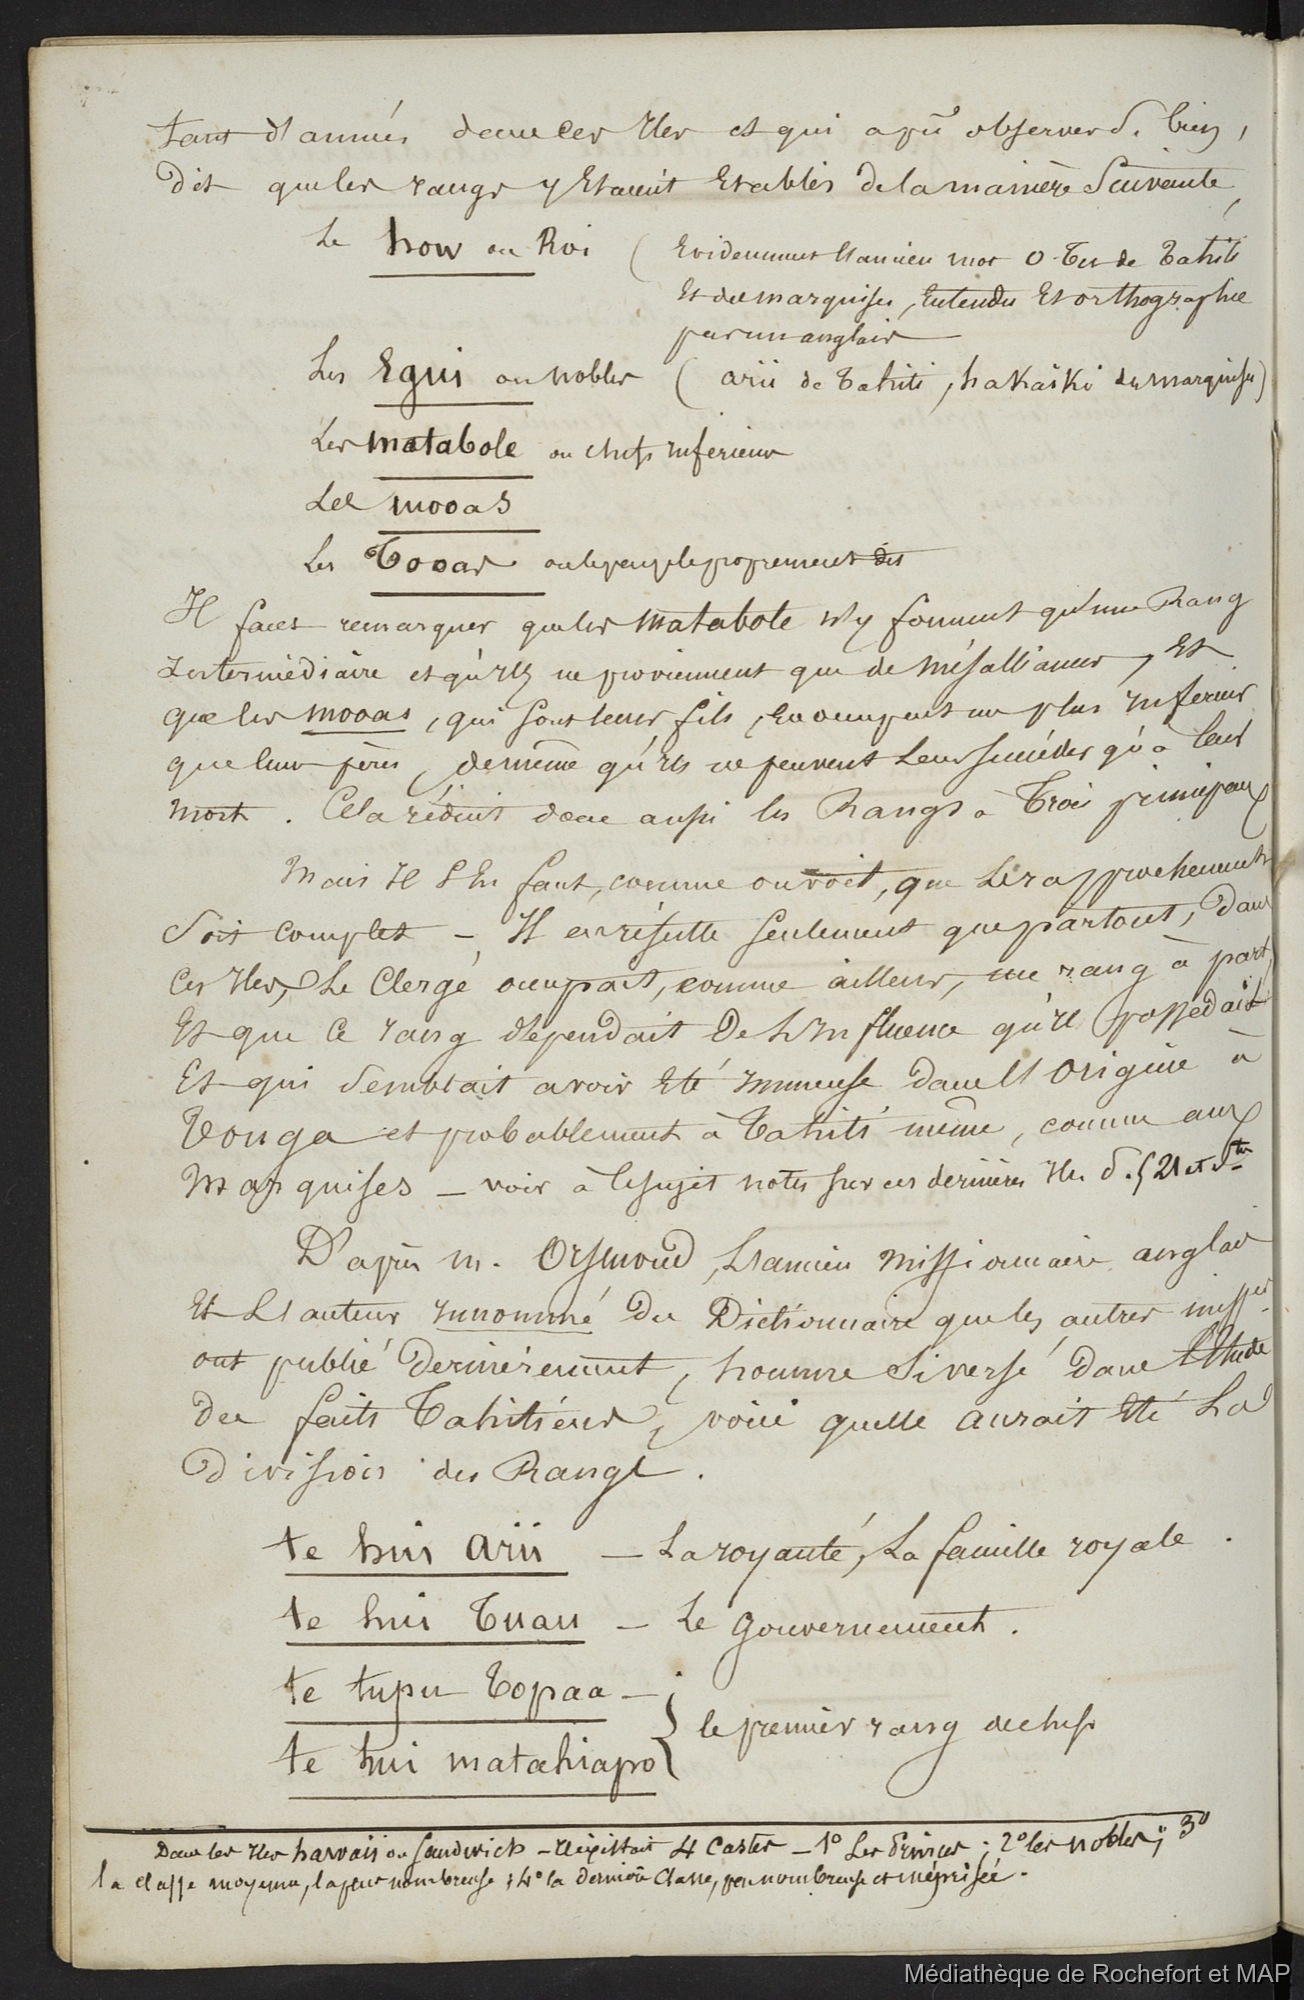 tant d'années dans ces Iles et qui a pû observer si bien,
dit que les rangs y Etaient Etablis de la manière Suivante,
Le how ou Roi ( Evidemment l'ancien mot O-Teu de Tahiti
Et des marquises, Entendu Et orthographié
par un anglais
Les Egui ou nobles ( arii de Tahiti, hakaiki des marquises)
Les matabole ou chefs inferieurs
Les mooas
Les Tooas ou le peuple proprement dit
Il fait remarquer que les matabole n'y forment qu'un Rang
Intermédiaire et qu'ils ne proviennent que de mésalliances, Et
que les mooas, qui sont leurs fils, en occupent un plus inferieur
que leurs pères, de même qu'ils ne peuvent leur succéder qu'à leur
mort. Cela réduit donc aussi les Rangs à Trois principaux
Mais Il s'En faut, comme on voit, que le rapprochement
Soit complet - Il en résulte seulement que partout, dans
ces Iles, Le Clergé occupait, comme ailleurs, un rang à part,
Et que ce rang dépendait De l'Influence qu'il possédait
Et qui semblait avoir Eté immense dans l'Origine à
Tonga et probablement à Tahiti même, comme aux
Marquises - voir à ce sujet notes sur ces dernières Iles § 21 et stes
D'après m. Orsmond, l'ancien missionnaire anglais
Et l'auteur innommé du Dictionnaire que les autres missres
ont publié dernièrement, homme si versé dans l'Etude
des faits Tahitiens, voici quelle aurait Eté La
Division des Rangs.
te hui arii - La royauté, La famille royale.
te hui Tuau - Le gouvernement.
te tupu Topaa -
te hui matahiapo } le premier rang de chefs
Dans les Iles hawaii ou Sandwich - Il existait 4 Castes - 1° Les Princes ; 2° les nobles ; 3°
la classe moyenne, la plus nombreuse ; 4° la dernière classe, peu nombreuse et méprisée.
Médiathèque de Rochefort et MAP